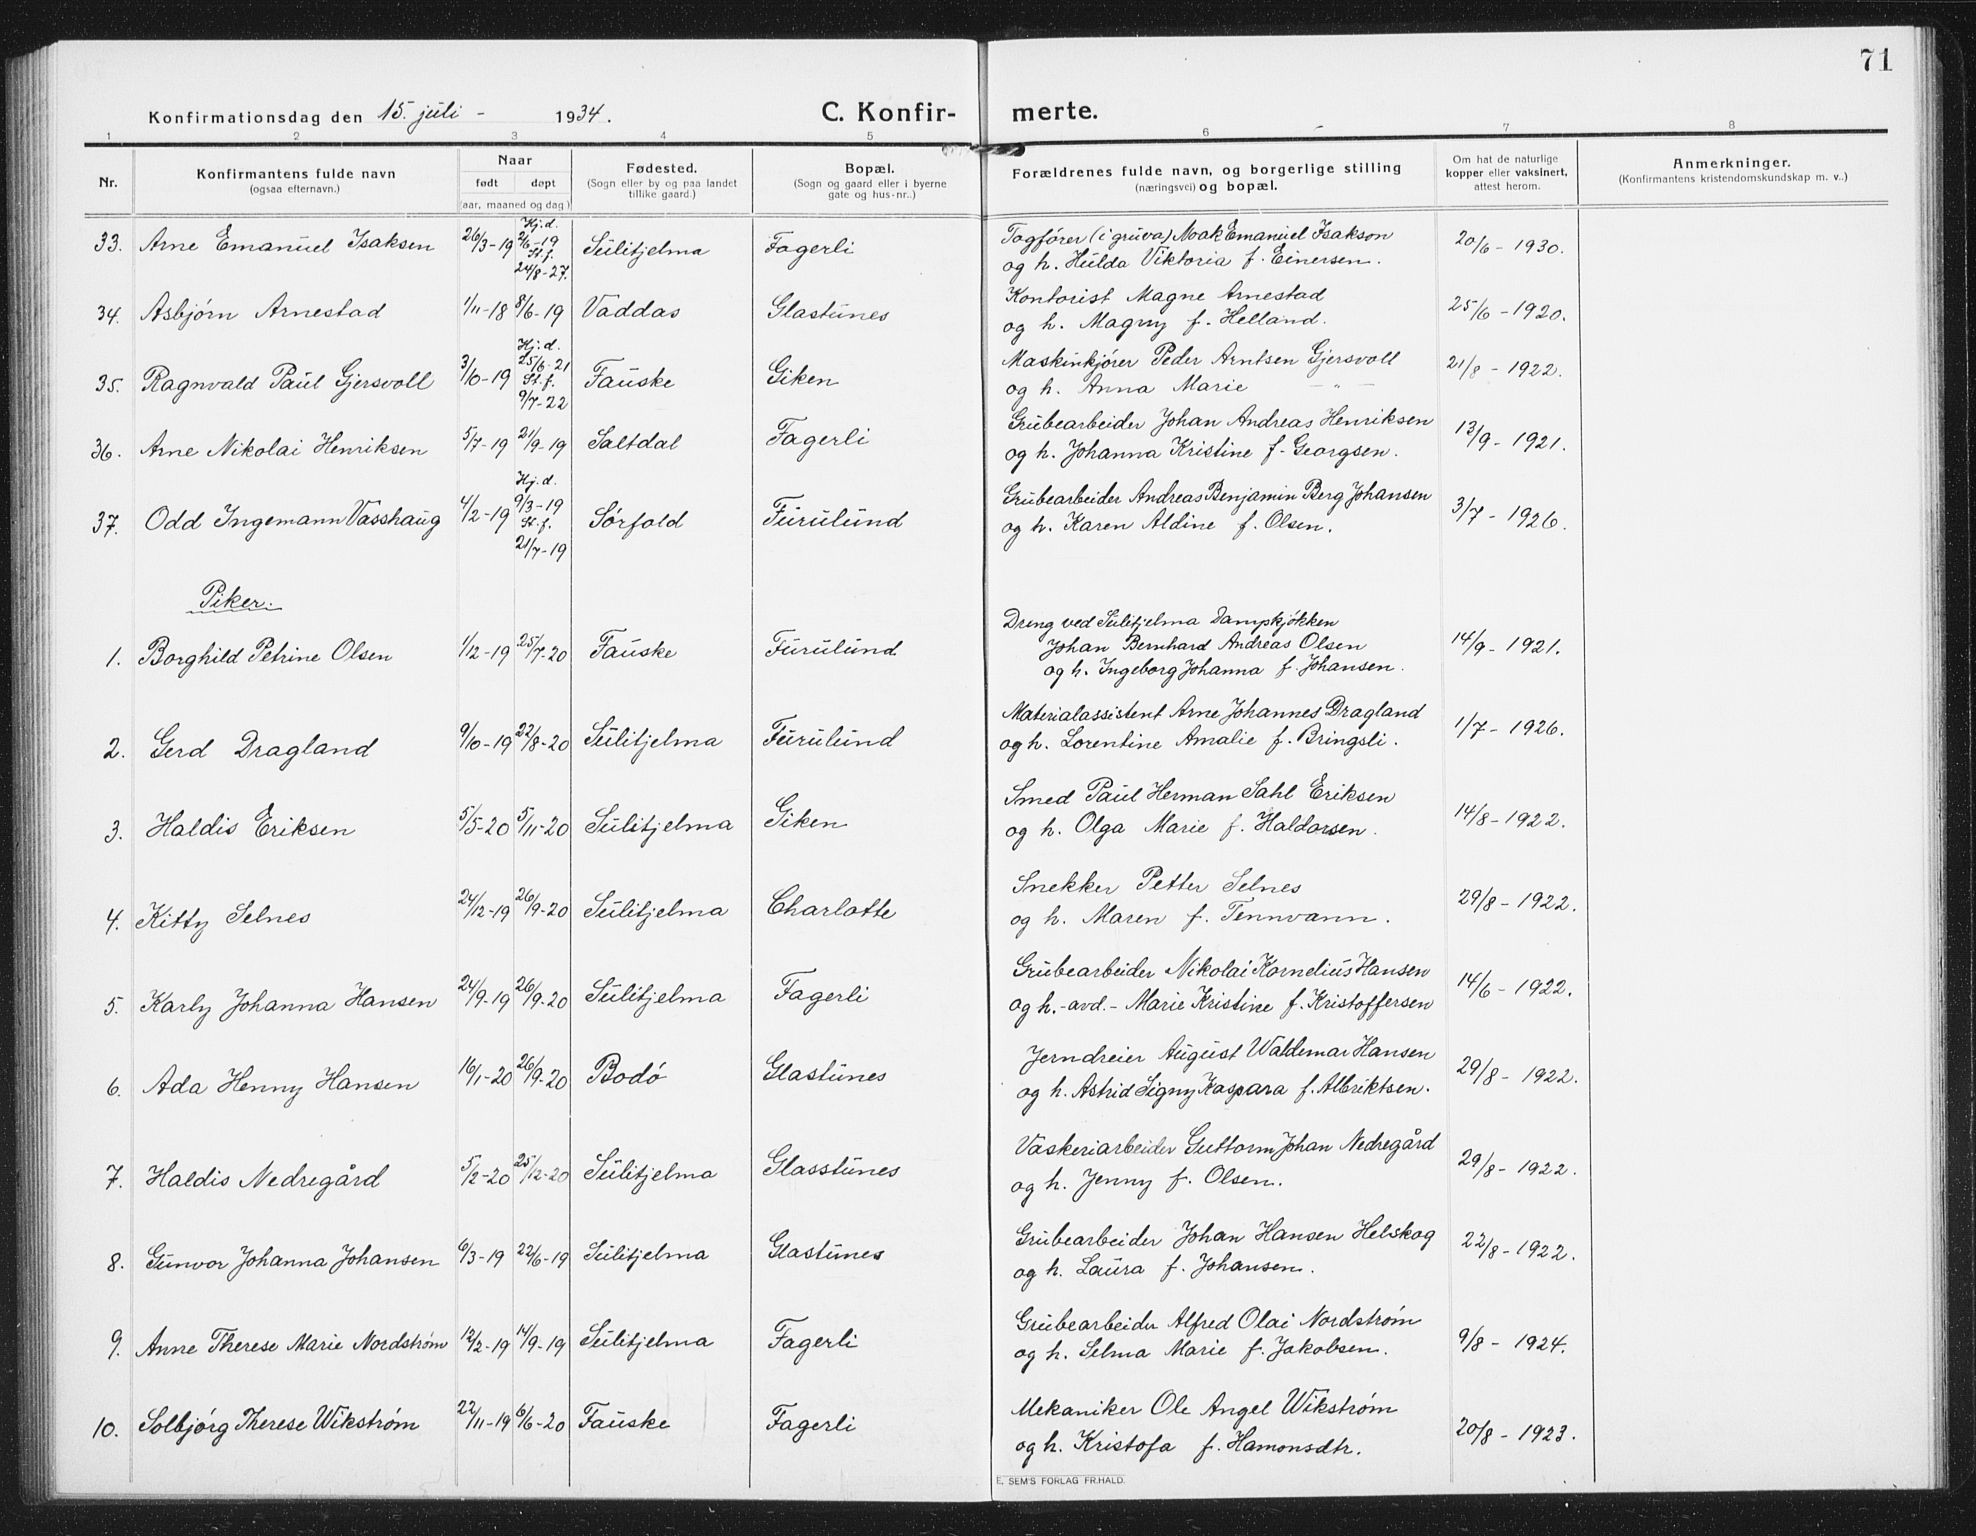 71
Konfirmationsdag den 15. juli - 1934.
C. Konfir- merte.
1 2 3 4 5 6 7 8
Nr.
Konfirmantens fulde navn
(ogsaa efternavn.)
Naar
født døpt
(aar, maaned og dag)
Fødested.
(Sogn eller by og paa landet
tillike gaard.)
Bopæl.
(Sogn og gaard eller i byerne
gate og hus-nr..)
Forældrenes fulde navn, og borgerlige stilling
(næringsvei) og bopæl.
Om hat de naturlige
kopper eller vaksinert,
attest herom.
Anmerkninger.
(Konfirmantens kristendomskundskap m. v..)
33. Arne Emanuel Isaksen 26/3-19 Hj.d. 2/6-19 St.f. 24/8-27. Sulitjelma Fagerli Togfører (i gruva) Noak Emanuel Isakson 20/6-1930.
og h. Hulda Viktoria f. Einersen.
34. Asbjørn Arnestad 1/11-18 8/6-19 Vaddas Glastunes Kontorist Magne Arnestad 25/6-1920.
og h. Magny f. Helland.
35. Ragnvald Paul Gjersvoll 3/10-19 Hj.d. 25/6-21 St.f. 9/7-22 Fauske Giken Maskinkjører Peder Arntsen Gjersvoll 21/8-1922.
og h. Anna Marie — " —
36. Arne Nikolai Henriksen 5/7-19 21/9-19 Saltdal Fagerli Grubearbeider Johan Andreas Henriksen 13/9-1921.
og h. Johanna Kristine f. Georgsen.
37. Odd Ingemann Vasshaug 4/2-19 Hj.d. 9/3-19 St.f. 21/7-19 Sørfold Furulund Grubearbeider Andreas Benjamin Berg Johansen 3/7-1926.
og h. Karen Aldine f. Olsen.
Piker:
1. Borghild Petrine Olsen 1/12-19 25/7-20 Fauske Furulund Dreng ved Sulitjelma Dampkjøkken 14/9-1921.
Johan Bernhard Andreas Olsen
og h. Ingeborg Johanna f. Johansen.
2. Gerd Dragland 9/10-19 22/8-20 Sulitjelma Furulund Materialassistent Arne Johannes Dragland 1/7-1926.
og h. Lorentine Amalie f. Bringsli.
3. Haldis Eriksen 5/5-20 5/11-20 Sulitjelma Giken Smed Paul Herman Sahl Eriksen 14/8-1922.
og h. Olga Marie f. Haldorsen.
4. Kitty Selnes 24/12-19 26/9-20 Sulitjelma Charlotte Snekker Petter Selnes 29/8-1922.
og h. Maren f. Tennvann.
5. Karly Johanna Hansen 24/9-19 26/9-20 Sulitjelma Fagerli Grubearbeider Nikolai Kornelius Hansen 14/6-1922.
og h.-avd.- Marie Kristine f. Kristoffersen
6. Ada Henny Hansen 16/1-20 26/9-20 Bodø Glastunes Jerndreier August Waldemar Hansen 29/8-1922.
og h. Astrid Signy Kaspara f. Albriktsen.
7. Haldis Nedregård 5/2-20 25/12-20 Sulitjelma Glasstunes Vaskeriarbeider Guttorm Johan Nedregård 29/8-1922.
og h. Jenny f. Olsen.
8. Gunvor Johanna Johansen 6/3-19 22/6-19 Sulitjelma Glastunes Grubearbeider Johan Hansen Helskog 22/8-1922.
og h. Laura f. Johansen.
9. Anne Therese Marie Nordstrøm 12/2-19 14/9-19 Sulitjelma Fagerli Grubearbeider Alfred Olai Nordstrøm 9/8-1924.
og h. Selma Marie f. Jakobsen.
10. Solbjørg Therese Wikstrøm 22/11-19 6/6-20 Fauske Fagerli Mekaniker Ole Angel Wikstrøm 20/8-1923.
og h. Kristofa f. Hamonsdtr.
E. SEM'S FORLAG FR.HALD.